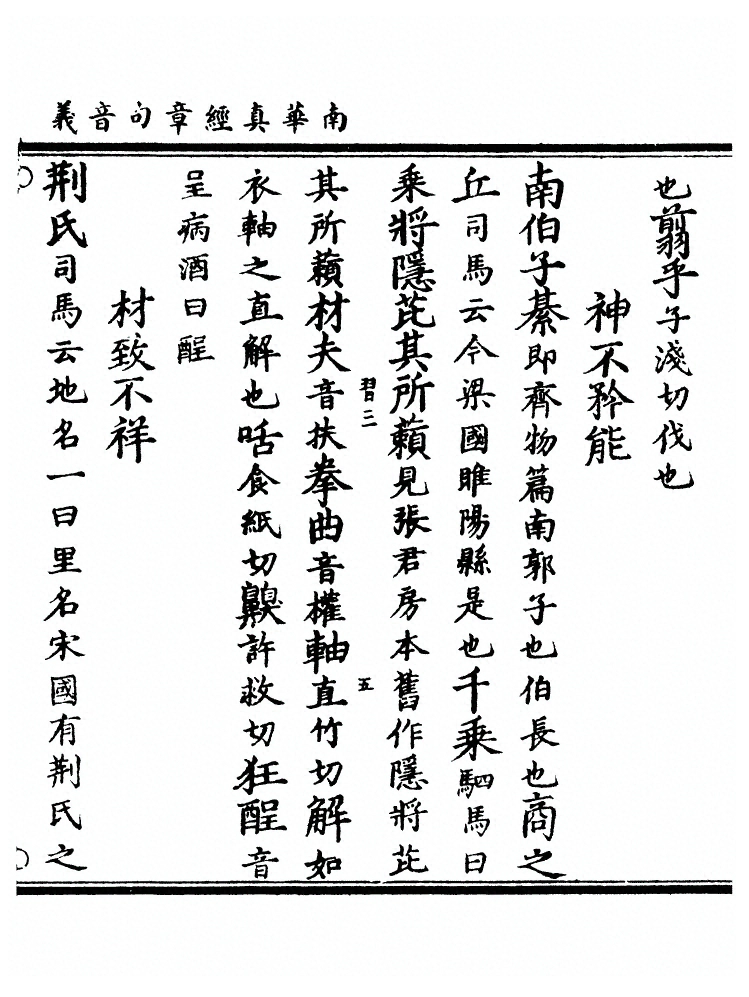 南華真經章句音義
也翦乎子淺切伐也
神不矜能
南伯子綦即齊物篇南郭子也伯長也商之
丘司馬云今梁國睢陽縣是也千乘駟馬曰
乘將隱芘其所藾見張君房本舊作隱將芘
習三
五
其所藾材夫音扶拳曲音權軸直竹切解如
衣軸之直解也咶食紙切齅許救切狂酲音
呈病酒曰酲
材致不祥
荆氏司馬云地名一曰里名宋國有荆氏之